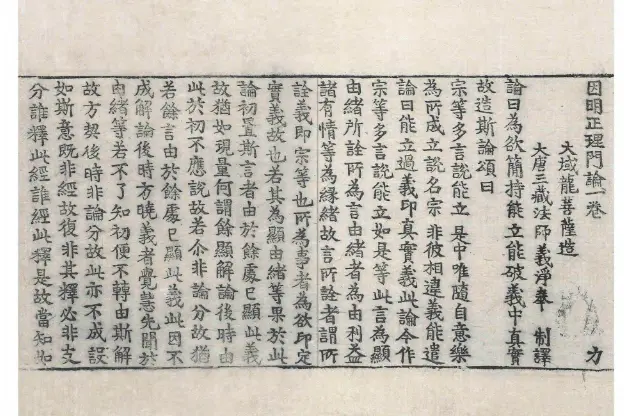 因明正理門論一卷 力
大域龍菩薩造
大唐三藏法師義淨奉 制譯
論曰為欲簡持能立能破義中真實
故造斯論頌曰
宗等多言說能立 是中唯隨自意樂
為所成立說名宗 非彼相違義能遣
論曰能立過義印真實義此論令作
宗等多言說能立如是等此言為顯
由緒所詮所為言由緒者為由利益
諸有情等為緣緒故言所詮者謂所
詮義即宗等也所為事者為欲印定
實義故也若其為顯由緒等果於此
論初置斯言者由於餘處已顯此義
故猶如現量何謂餘顯解論後時由
此於初不應說故若尒非論分故猶
若餘言由於餘處已顯此義此因不
成解論後時方曉義者覺慧先聞於
由緒等若不了知初便不轉由斯解
故方契後時非論分故此亦不成設
如斯意既非經故復非其釋必非支
分誰釋此經誰經此釋是故當知如